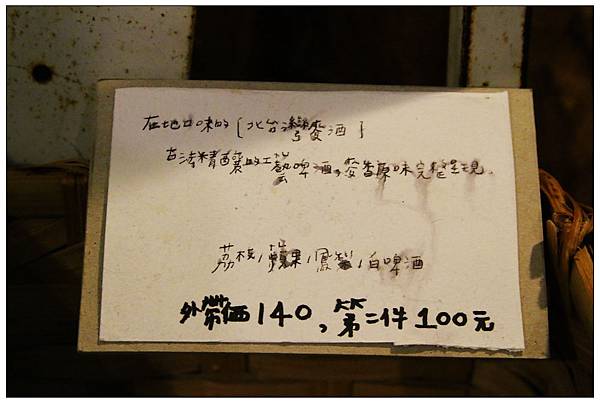 在地口味的［北台灣麥酒］
古法精釀的工藝啤酒，麥香原味完整呈現。
荔枝/蘋果/鳳梨/白啤酒
外帶価140，第二件100元